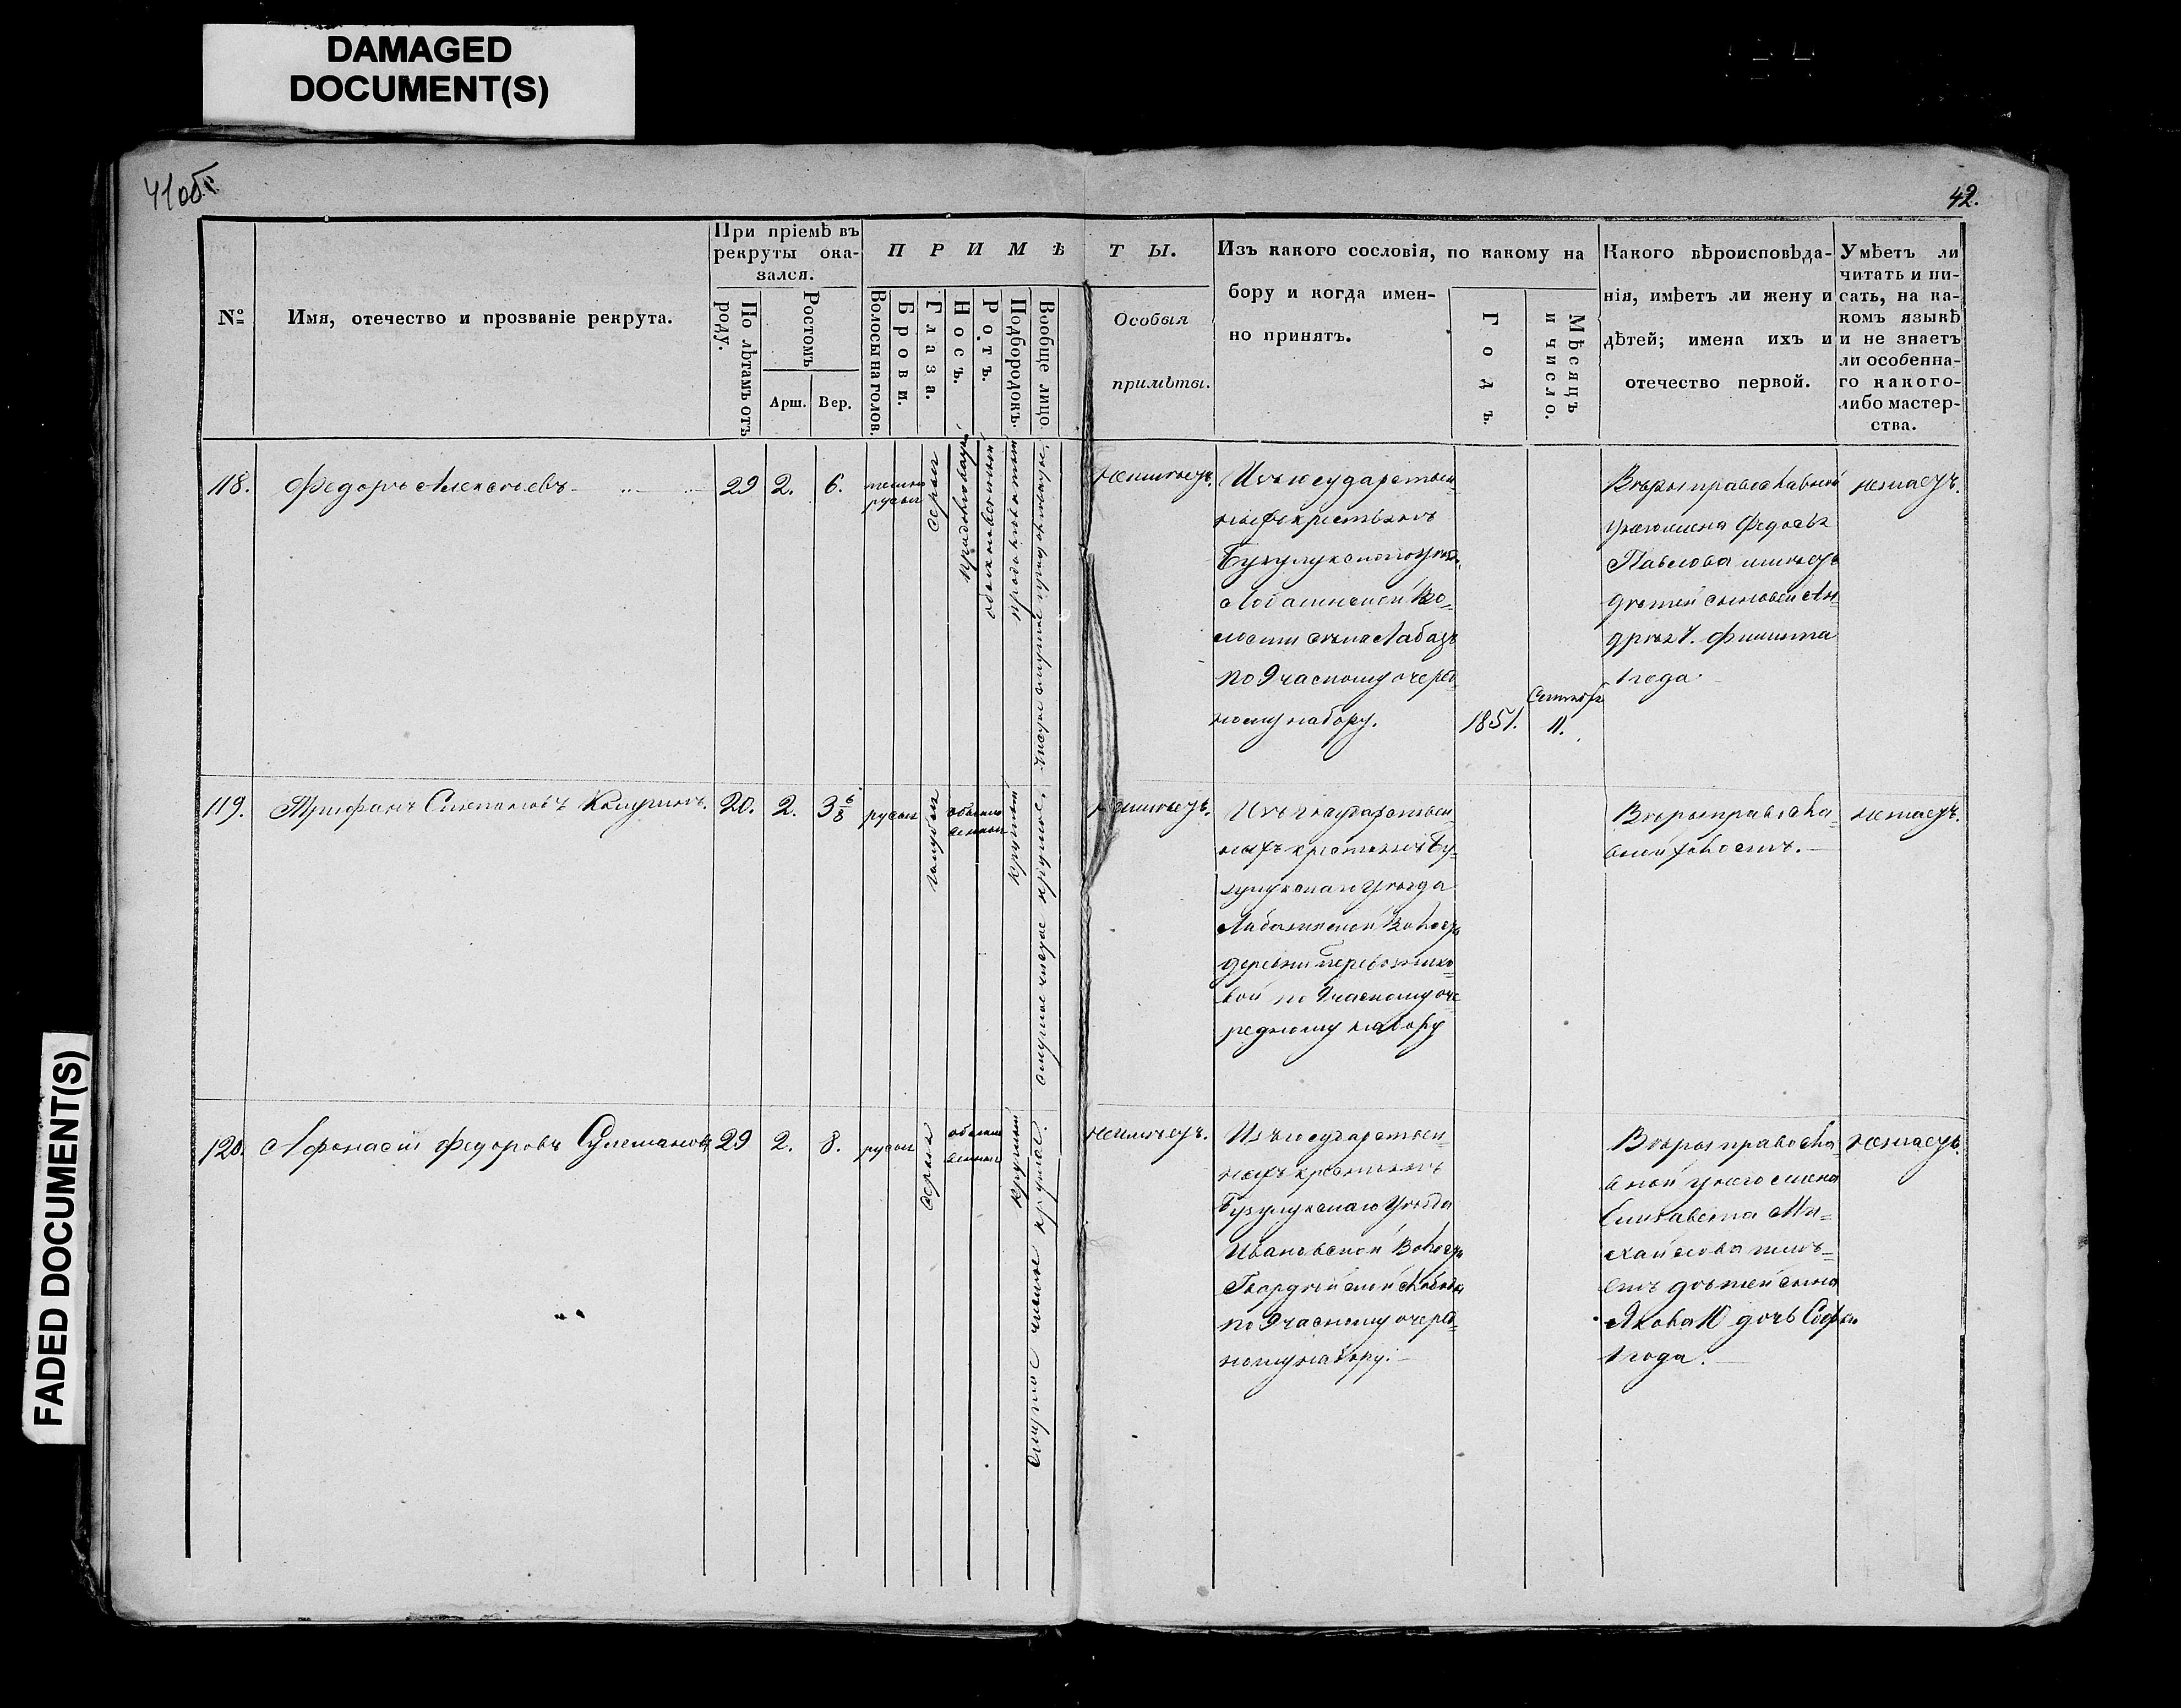 DAMAGED
DOCUMENT(S)
FADED DOCUMENT(S)
41об.
42.
№
Имя, отечество и прозваніе рекрута.
При пріемѣ въ
рекруты ока-
зался.
По лѣтамъ отъ
роду.
Ростомъ
Арш.
Вер.
ПРИМѢТЫ.
Волосы на голов.
Брови.
Глаза.
Носъ.
Ротъ.
Подбородокъ.
Вообще лицо
Особыя
примѣты.
Изъ какого сословія, по какому на
бору и когда имен-
но принятъ.
Годъ.
Мѣсяцъ
и число.
Какого вѣроисповѣда-
нія, имѣетъ ли жену и
дѣтей; имена ихъ и
отечество первой.
Умѣетъ ли
читать и пи-
сать, на ка-
комъ языкѣ
и не знаетъ
ли особенна-
го какого-
либо мастер-
ства.
118.
Федоръ Алексѣевъ
29
2.
6.
темно
русыя
серыя
обыкновенный
неимѣетъ.
Изъ государствен=
ныхъ крестьянъ
Бузулукскаго уѣзда
Лобазинской Во=
лости села Лабазъ
по 9 часному очеред=
ному набору.
1851.
Сентября
11.
Вѣры православной
у него жена Федосья
Павлова имѣетъ
дѣтей сыновей Ан=
дрея 4. Филипа
1 года.
незнаетъ.
119.
Трифанъ Степановъ Калугинъ.
20.
2.
3 6/8
русыя
голубыя
обыкно
венныя
круглый
неимѣетъ.
Изъ государствен=
ныхъ крестьянъ Бу=
зулукскаго уѣзда
Лабазинской Волости
деревни Перевознико=
вой по 9 часному оче
редному набору
Вѣры правосла=
вной холостъ.
незнаетъ.
120.
Афонасій Федоровъ Сулемановъ
29
2.
8.
русыя
серыя
обыкно
венныя
круглый
неимѣетъ.
Изъ государствен=
ныхъ крестьянъ
Бузулукскаго Уѣзда
Ивановской Волости
по 9 часному очеред=
ному набору.
Вѣры правосла=
вной у него жена
Елизавета Ми=
хайлова имѣ=
етъ дѣтей сына
Якова 10 дочь Софью
1 года.
незнаетъ.